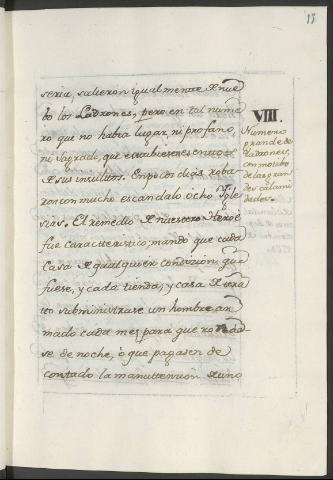 13
seria, salieron igualmente de nue
bo los Ladrones, pero en tal nume
ro que no habia lugar, ni profano,
ni sagrado, que estubiese
de sus insultos. En pocos dias roba
ron con mucho escandalo ocho Ygle
sias. El remedio de nuestro Heroé
fue caracteristico; mandó que cada
casa de qualquier condizion, que
fuese, y cada tienda, y casa de
subministrase un hombre ar
mado cada mes, para que rondá-
se de noche, ó que pagasen de
contado la manuttenzion de uno
VIII.
Numero
grande de
Ladrones,
con motibo
de las gran
des calami
dades.